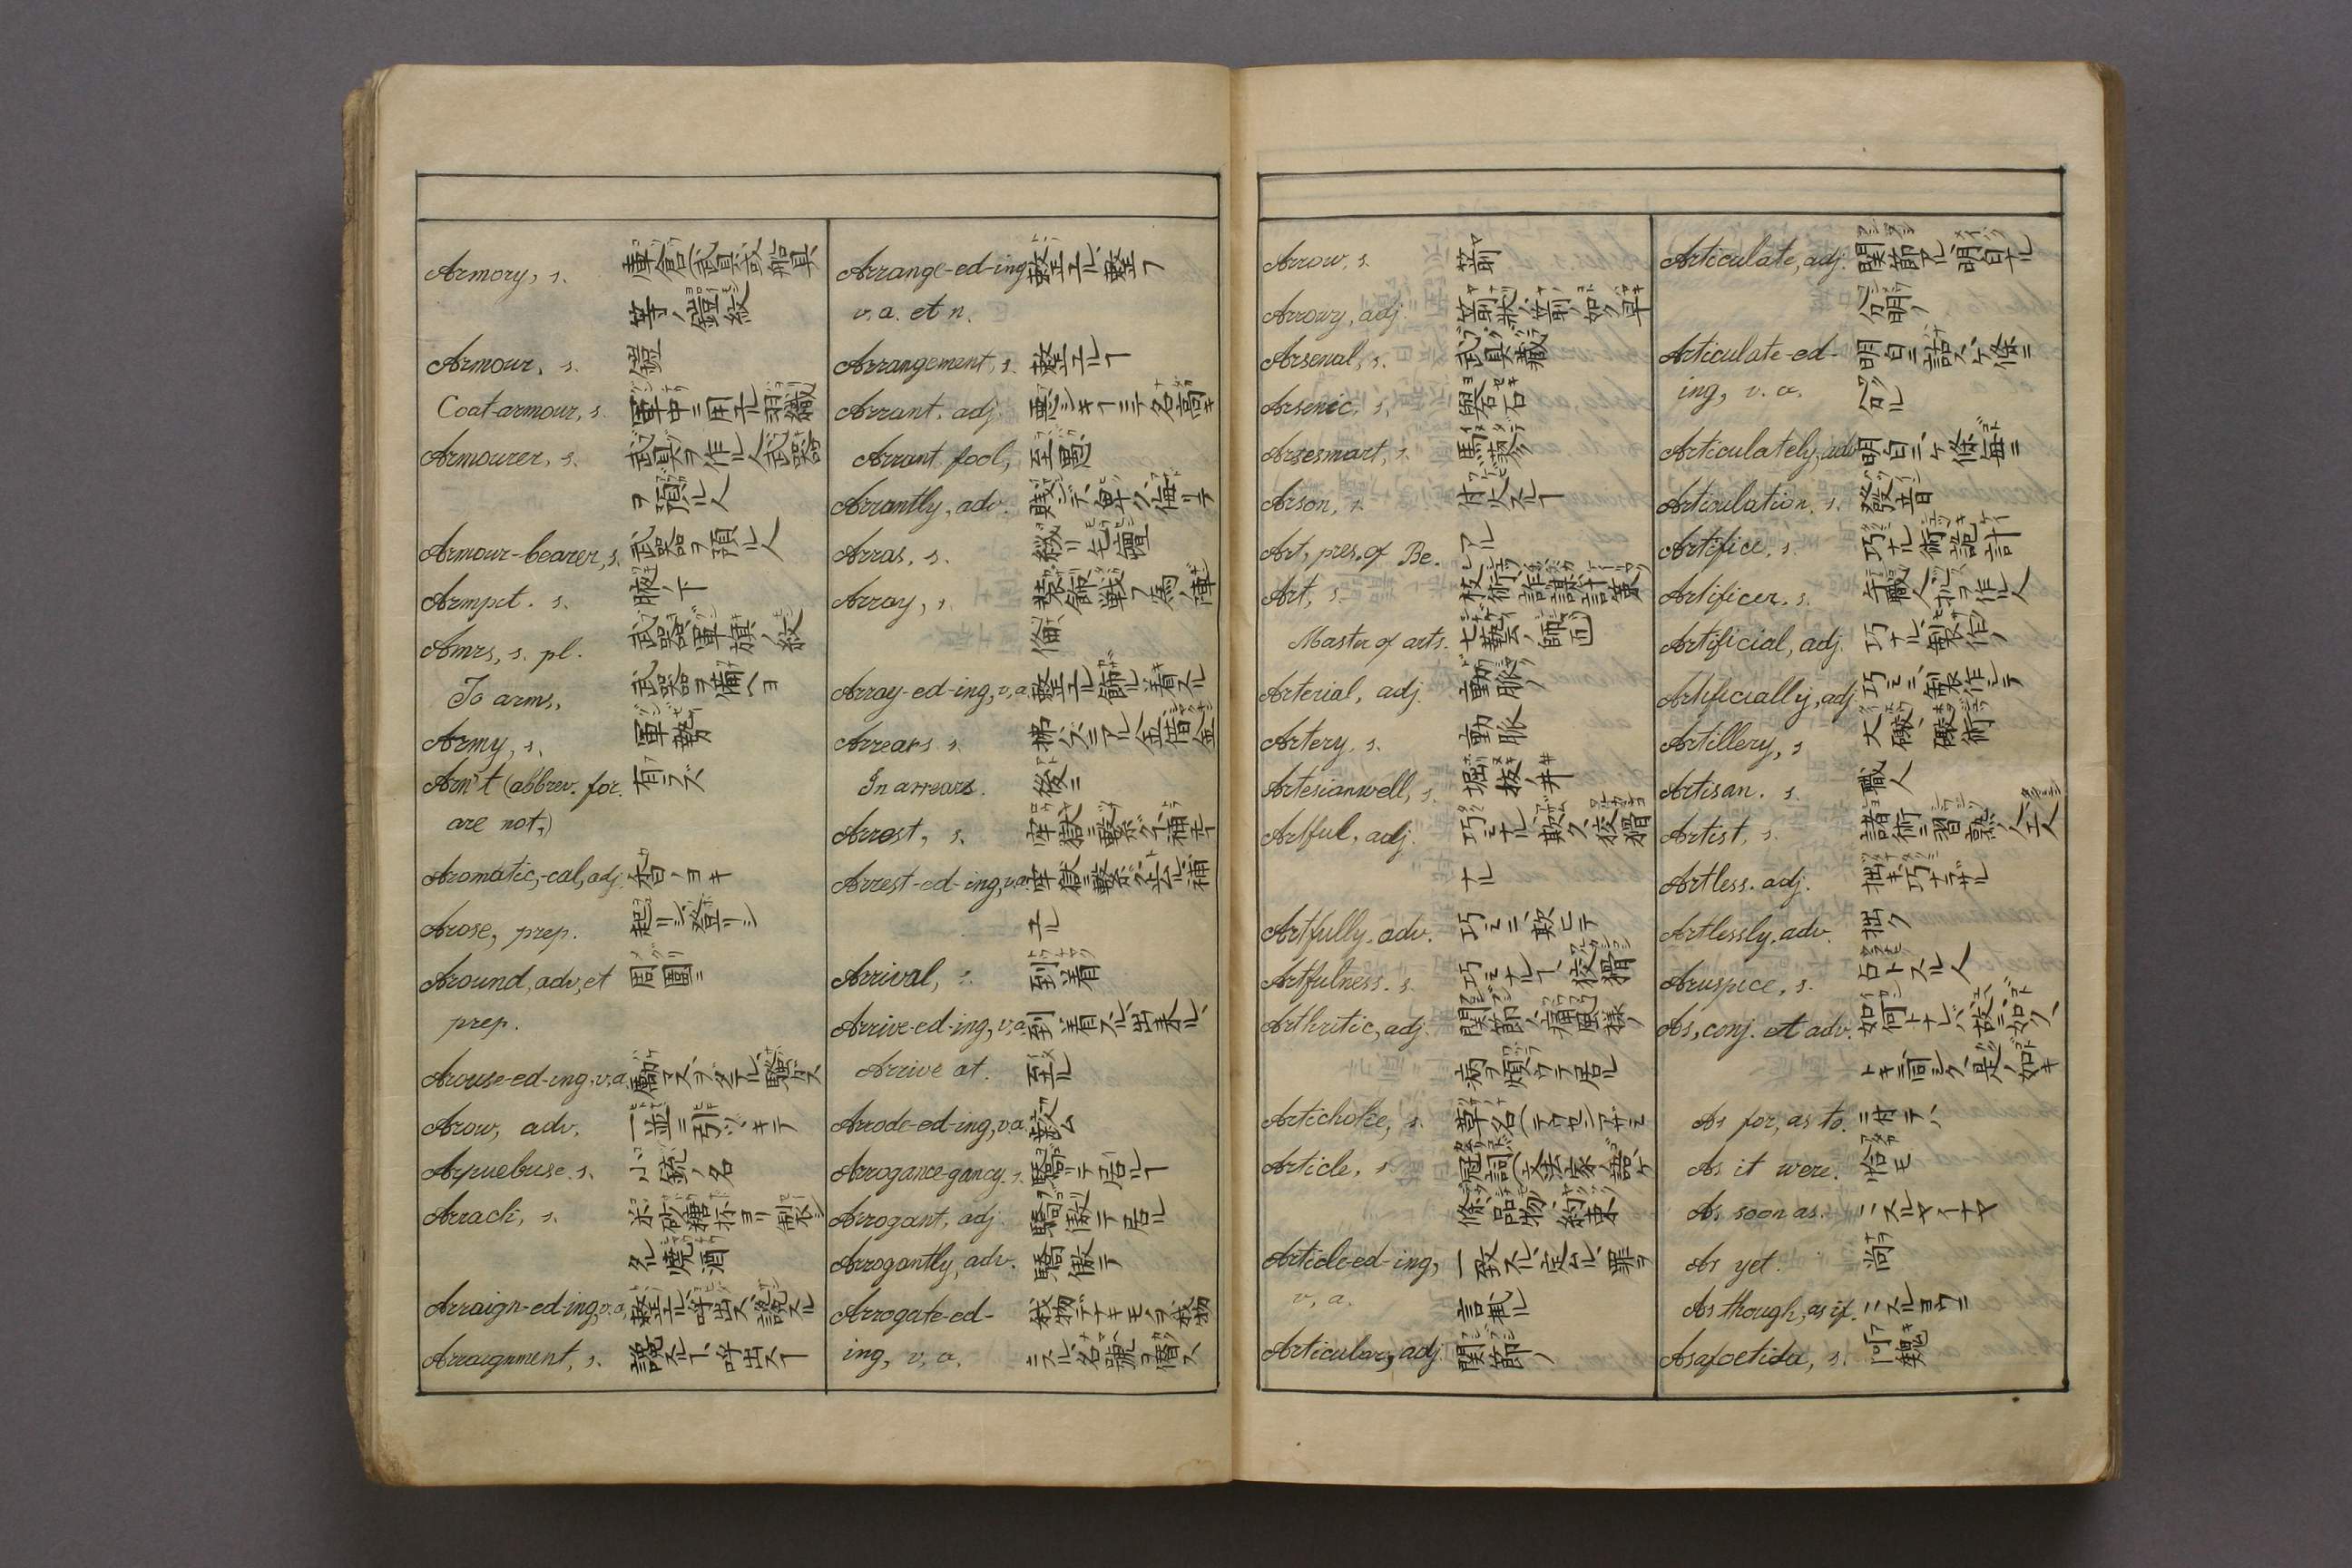 Armory, s. 庫倉(武具或船具
等ノ鎧紋
Armour, s. 鎧
Coat-armour, s. 軍中ニ用ユル羽織
Armourer, s. 武具ヲ作ル人武器
ヲ預ル人
Armour-bearer, s. 武器ヲ預ル人
Armpit. s. 腋ノ下
Amrs, s. pl. 武器軍旗ノ紋
To arms, 武器ヲ備ヘヨ
Army, s. 軍勢
Arn't (abbrev. for. 有ラズ
are not,)
Aromatic,-cal, adj. 香ノヨキ
Arose, prep. 起リシ登リシ
Around, adv, et 周圍ニ
prep.
Arouse-ed-ing, v.a. 勵マス
Arow, adv. 一並ニ引ツヾキテ
Arquebuse. s. 小銃ノ名
Arrack, s. 米砂糖抔ヨリ製シ
タル燒酒
Arraign-ed-ing, v.a. 整エル呼出ス
Arraignment, s. 呼出スヿ
Arrange-ed-ing 整エル整フ
v. a. et n.
Arrangement, s. 整エルヿ
Arrant. adj. 悪シキヿニテ名高キ
Arrant fool, 至愚
Arrantly, adv.
Arras, s. 毛氈
Array, s. 装飾戦ノ為ノ陣
備
Array-ed-ing, v, a. 整エル飾ル着スル
Arrears. s. 拂ハズニアル金借金
In arrears. 後ニ
Arrest, s.
Arrest-ed-ing, v.a.
ユル
Arrival, s. 到着
Arrive-ed-ing, v, a. 到着スル出来ル
Arrive at. 至ル
Arrode-ed-ing, v.a.
Arrogance-gancy. s. 驕テ居ルヿ
Arrogant, adj. 驕傲テ居ル
Arrogantly, adv. 驕傲テ
Arrogate-ed- 我物デナキモノヲ我物
ing, v, a. ニスル名號ヲ僭ス
Arrow. s. 箭
Arrowy, adj. 箭状ノ箭ノ如ク早
Arsenal, s. 武具藏
Arsenic. s. 礜石
Arsesmart, s. 馬蓼
Arson, s.
Art, pres. of Be. アル
Art, s. 技術詐謀計策
Master of arts. 七藝ノ師
Arterial, adj. 動脈ノ
Artery. s. 動脈
Artesianwell, s. 堀抜ノ井
Artful, adj. 巧ミナル欺ク狡猾
ナル
Artfully. adv. 巧ミニ欺ヒテ
Artfulness. s. 巧ミナルヿ狡猾
Arthritic, adj. 関節ノ痛風様ノ
病ヲ煩ウテ居ル
Artichoke, s. 草名
Article, s. 冠詞(文法家ノ語)ケ
條品物約束
Article-ed-ing, 一致スル定ムル罪ヲ
v, a. 言
Articular, adj. 関節ノ
Articulate, adj. 関節アル明白ナル
分明ノ
Articulate-ed- 明白ニ語ズケ條ニ
ing, v. a. 分ル
Articulately, adv 明白ニケ條毎ニ
Articulation. s. 發音
Artifice, s. 巧ナル術詭計
Artificer. s. 職人
Artificial, adj. 巧ナル製作ノ
Artificially, adj. 巧ミニ製作シテ
Artillery, s 大礮礮術
Artisan. s. 職人
Artist, s. 諸術ニ習熟ノ人工人
Artless. adj. 拙キ巧ナラザル
Artlessly, adv. 拙ク
Aruspice, s. 占トスル人
As, conj. et adv. 如何トナレバ故ニ如ク
トキニ同シク是ノ如キ
As for, as to. ニ付テハ
As it were. 恰モ
As soon as. ニスルヤイナヤ
As yet. 尚ヲ
As though, as if. ニスルヨウニ
Asafoetida, s. 阿魏